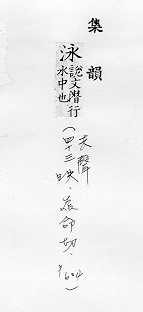 集韻
泳
說文潛行
水中也
去聲
(四十三映、為命切、P604)